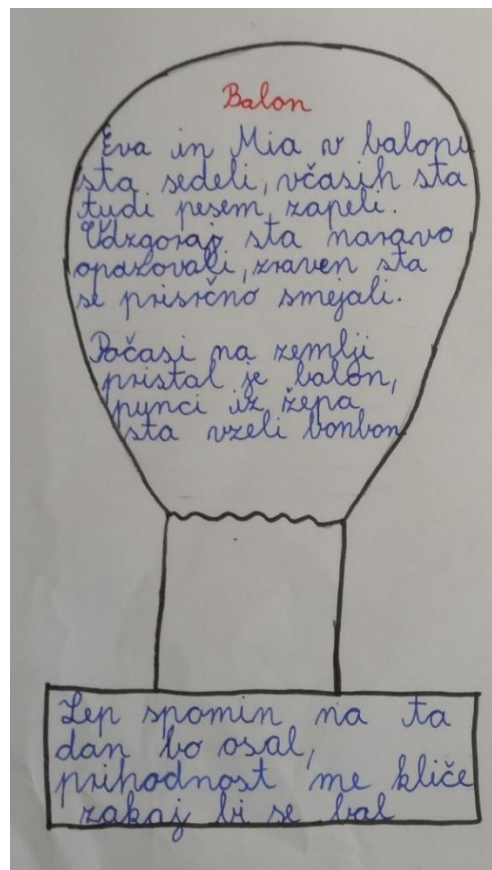 Balon
Eva in Mia v balonu
sta sedeli, včasih sta
tudi pesem zapeli.
Odzgoraj sta naravo
opazovali, zraven sta
se prisrčno smejali.
Počasi na zemlji
pristal je balon,
punci iz žepa
sta vzeli bonbon
Lep spomin na ta
dan bo osal,
prihodnost me kliče
zakaj bi se bal